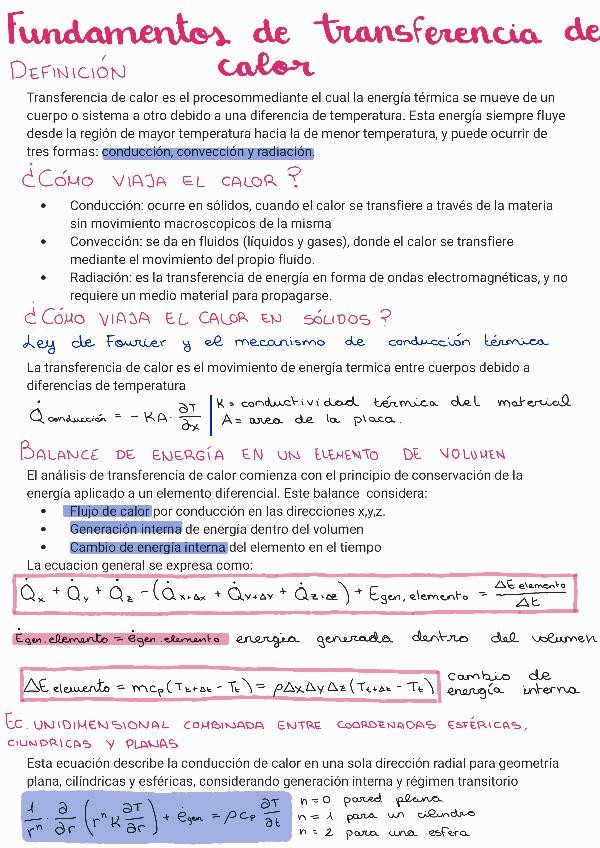 Fundamentos de transferencia de
calor
DEFINICIÓN
Transferencia de calor es el procesommediante el cual la energía térmica se mueve de un
cuerpo o sistema a otro debido a una diferencia de temperatura. Esta energía siempre fluye
desde la región de mayor temperatura hacia la de menor temperatura, y puede ocurrir de
tres formas: conducción, convección y radiación.
¿CÓMO VIAJA EL CALOR?
• Conducción: ocurre en sólidos, cuando el calor se transfiere a través de la materia
sin movimiento macroscopicos de la misma
• Convección: se da en fluidos (líquidos y gases), donde el calor se transfiere
mediante el movimiento del propio fluido.
• Radiación: es la transferencia de energía en forma de ondas electromagnéticas, y no
requiere un medio material para propagarse.
¿CÓMO VIAJA EL CALOR EN SÓLIDOS?
Ley de Fourier y el mecanismo de conducción térmica
La transferencia de calor es el movimiento de energía termica entre cuerpos debido a
diferencias de temperatura
Q̇ conducción = - KA · ∂T/∂x | K = conductividad térmica del material
A = area de la placa.
BALANCE DE ENERGÍA EN UN ELEMENTO DE VOLUMEN
El análisis de transferencia de calor comienza con el principio de conservación de la
energía aplicado a un elemento diferencial. Este balance considera:
• Flujo de calor por conducción en las direcciones x,y,z.
• Generación interna de energía dentro del volumen
• Cambio de energía interna del elemento en el tiempo
La ecuacion general se expresa como:
Q̇x + Q̇y + Q̇z - (Q̇x+Δx + Q̇y+Δy + Q̇z+Δz) + Egen, elemento = ΔE elemento/Δt
Ėgen. elemento = ėgen. elemento energia generada dentro del volumen
ΔE elemento = mcp(Tt+Δt - Tt) = ρΔxΔyΔz(Tt+Δt - Tt) cambio de
energía interna
EC. UNIDIMENSIONAL COMBINADA ENTRE COORDENADAS ESFÉRICAS,
CILINDRICAS Y PLANAS
Esta ecuación describe la conducción de calor en una sola dirección radial para geometría
plana, cilíndricas y esféricas, considerando generación interna y régimen transitorio
1/rⁿ · ∂/∂r (rⁿ K ∂T/∂r) + ėgen = ρcp ∂T/∂t n = 0 pared plana
n = 1 para un cilindro
n = 2 para una esfera